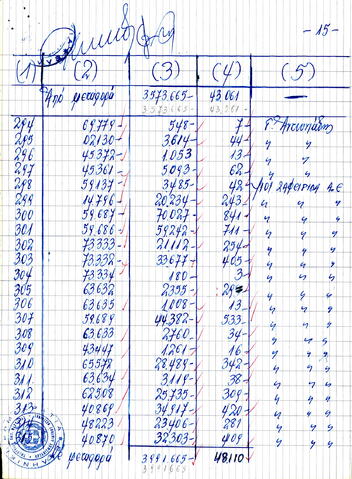 - 15 -
(1) (2) (3) (4) (5)
Από μεταφορά 3573.665- 43.061 —
3573.665- 43.061-
294 69.779- 548- 7
295 02130- 3.614- 44 " "
296 45.372- 1.053 13 " "
297 45.361 5.093 62 " "
298 59137 3.485- 42
299 14.796 20.234 243 " " "
300 59.687 70.027 841 " " "
301 59.686 59.242 711 " " "
302 73.333 21.112 254 " " "
303 73.332 33.677 405 " " "
304 73.334 180- 3 " " "
305 63632 2355- 29 " " "
306 63635 1.008- 13 " " "
307 59689 44.382 533 " " "
308 63.633 2760 34 " " "
309 43447 1.261 16 " " "
310 65578 28.489 342 " " "
311 63.634 3.119 38 " " "
312 62508 25.735 309 " " "
313 40869 34.917 420 " " "
314 48223 23406 281 " " "
40870 32.303 409 " " "
μεταφορά 3991.665- 48.110
3991665